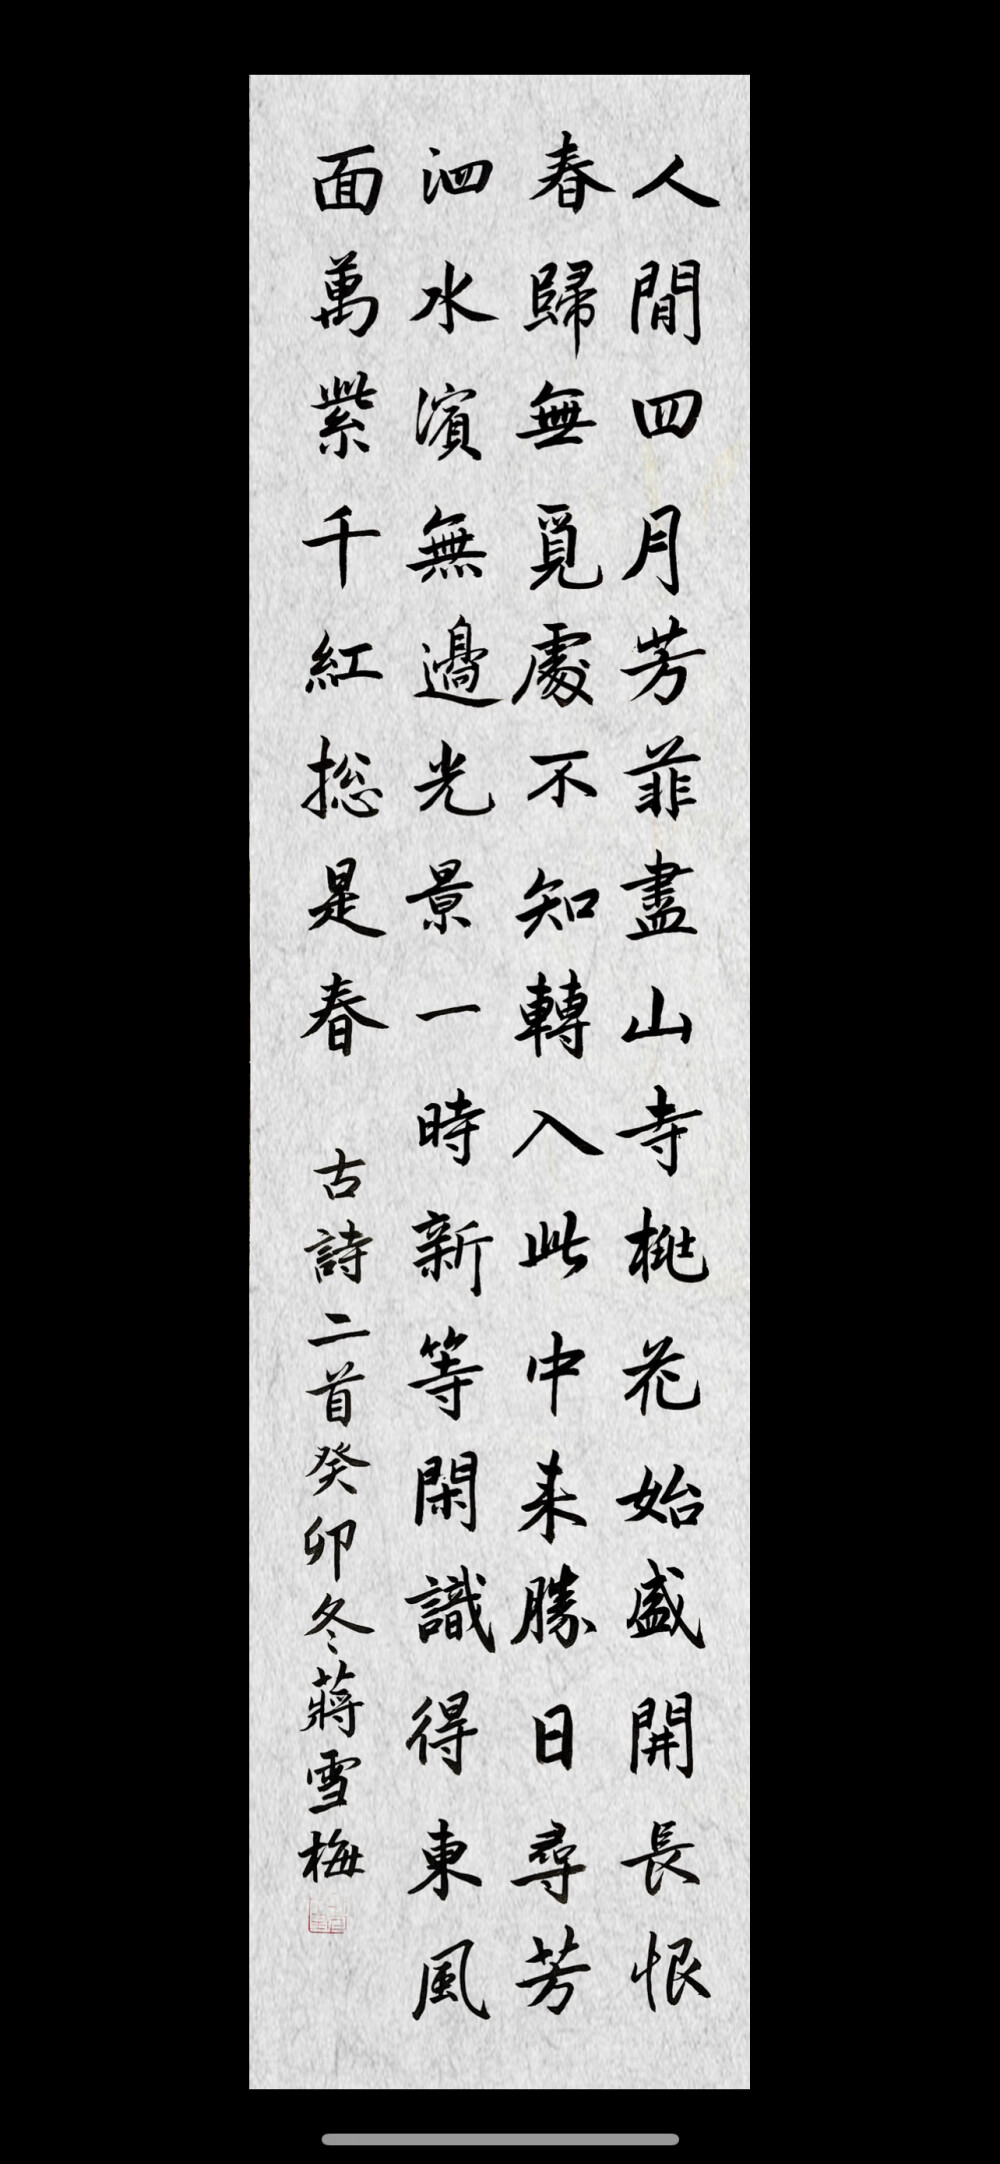 人間四月芳菲盡山寺桃花始盛開長恨
春歸無覓處不知轉入此中来勝日尋芳
泗水濱無邊光景一時新等閑識得東風
面萬紫千紅総是春
古詩二首癸卯冬蔣雪梅